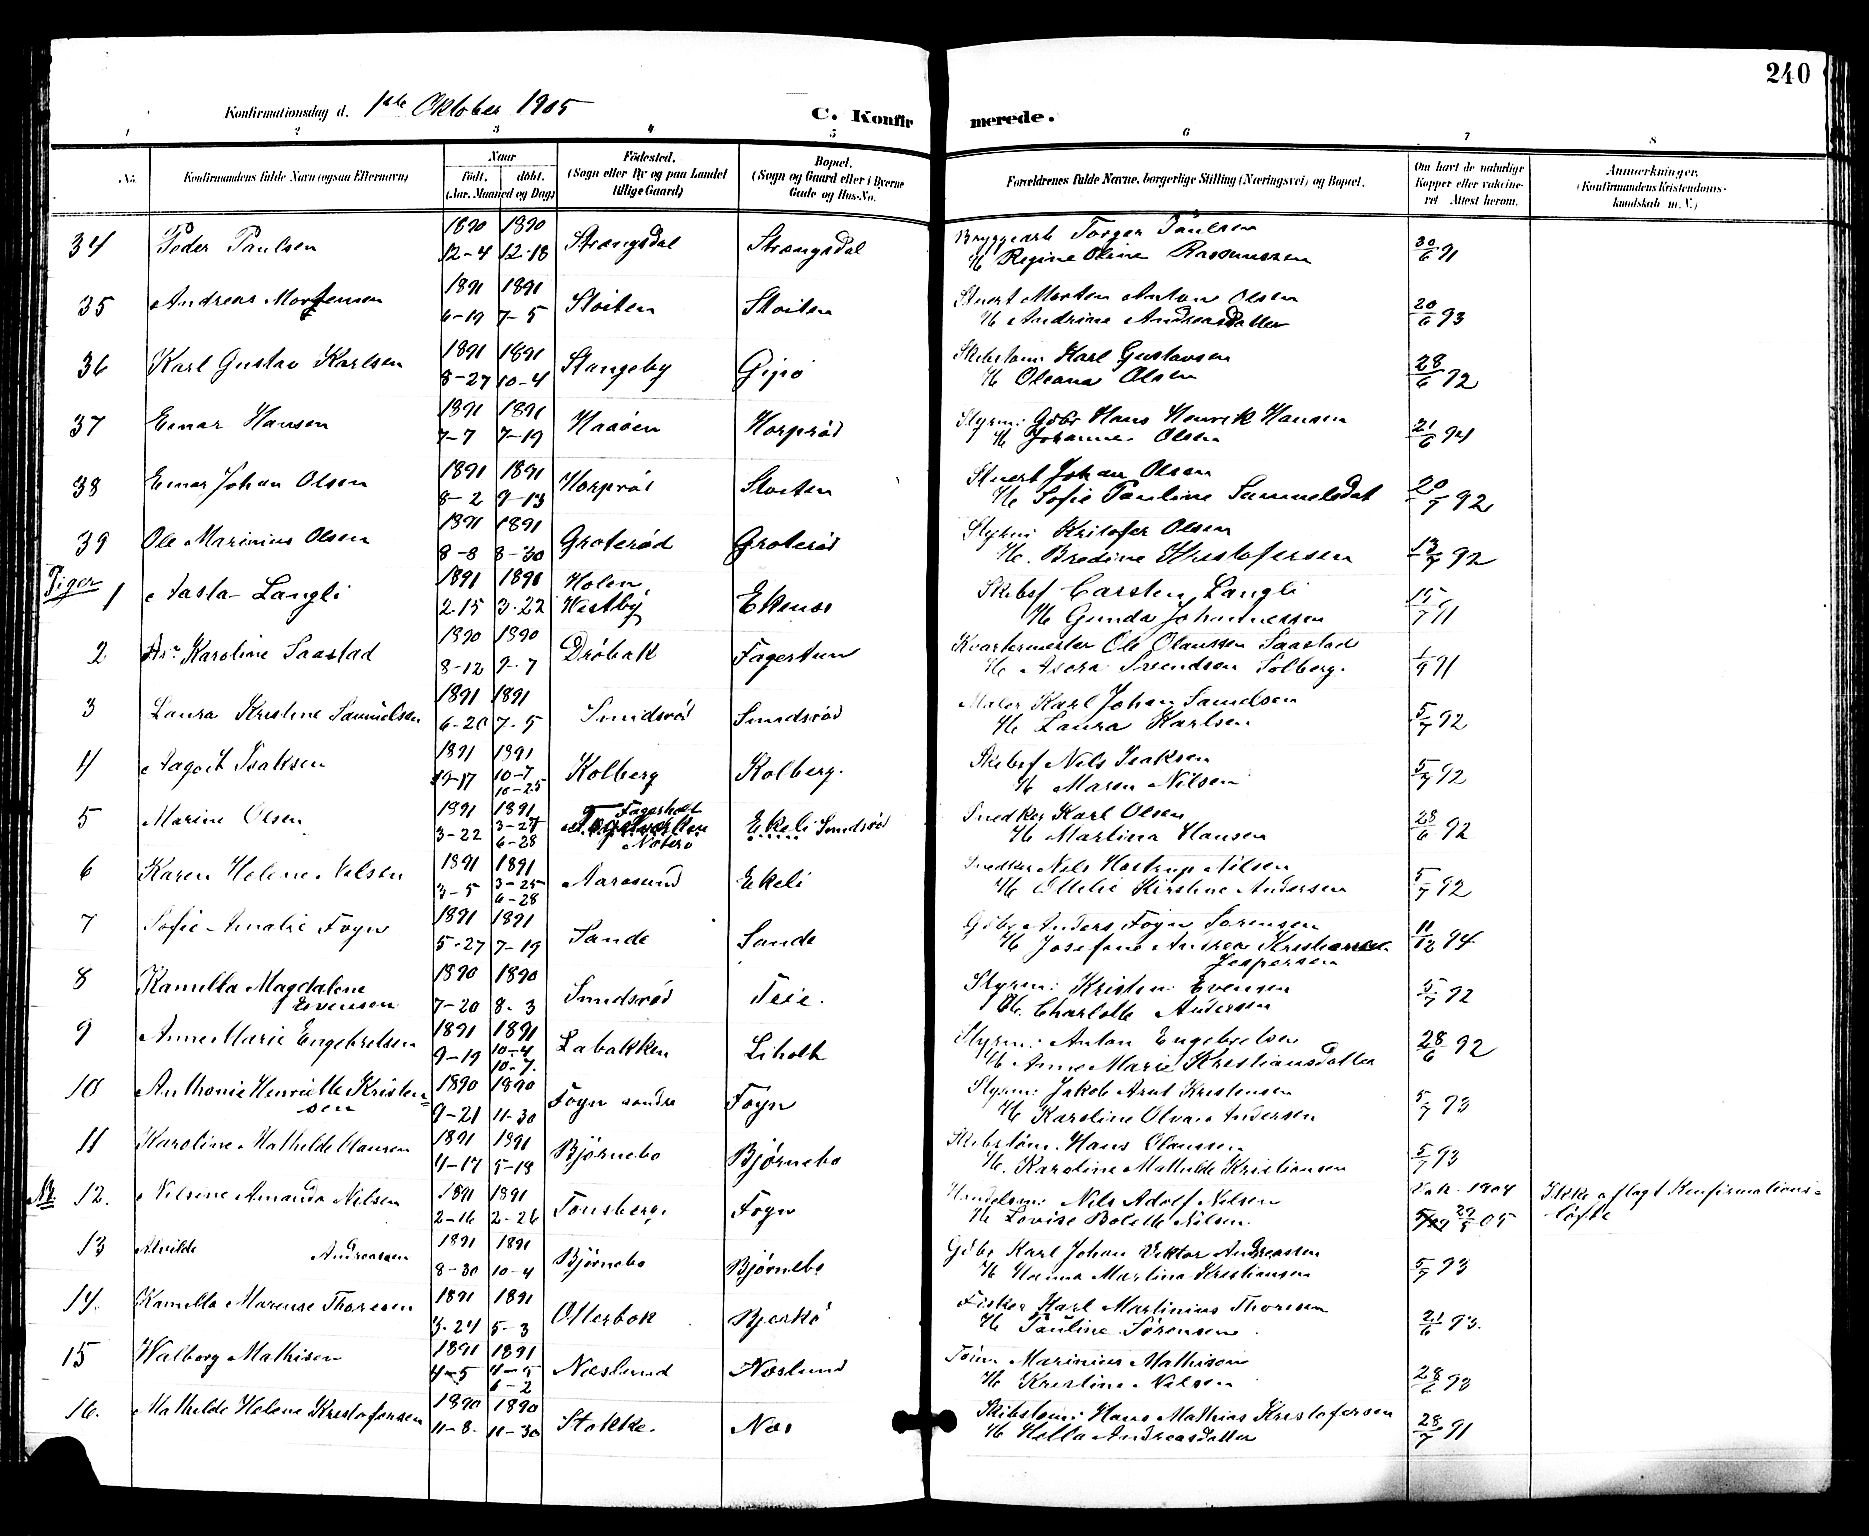 240
Konfirmationsdag d. 1ste Oktober 1905
C. Konfir merede.
1 2 3 4 5 6 7 8
No.
Konfirmandens fulde Navn (ogsaa Efternavn)
Naar
födt. döbt.
(Aar, Maaned og Dag)
Födested.
(Sogn eller By og paa Landet
tillige Gaard)
Bopæl.
(Sogn og Gaard eller i Byerne
Gade og Hus-No.
Forældrenes fulde Navne, borgerlige Stilling (Næringsvei) og Bopæl.
Om havt de naturlige
Kopper eller vakcine-
ret Attest herom.
Anmærkninger.
(Konfirmandens Kristendoms-
kundskab m. V.)
34 Peder Paulsen 1890 1890 12-4 12-18 Strængsdal Strængsdal Bryggearb Torger Paulsen
H Regine Oline Rasmussen 30/6 91
35 Andreas Mortensen 1891 1891 6-19 7-5 Stoiten Stoiten Stuert Morten Anton Olsen
H Andrine Andreasdatter 20/6 93
36 Karl Gustav Karlsen 1891 1891 8-27 10-4 Stangeby Gipø Skibstøm Karl Gustavsen
H Oleana Olsen 28/6 92
37 Einar Hansen 1891 1891 7-7 7-19 Haaøen Horprød Styrm: Gdbr Hans Henrik Hansen
H Johanne Olsen 21/6 94
38 Einar Johan Olsen 1891 1891 8-2 9-13 Horprød Stoiten Stuert Johan Olsen
H Sofie Pauline Samuelsdat 20/7 92
39 Ole Marinius Olsen 1891 1891 8-8 8-30 Groterød Groterød Styrm: Kristofer Olsen
H. Bredine Kristofersen 13/7 92
Piger
1 Aasta Langli 1891 1891 2-15 3-22 Holen Westby Ekenæs Skibsf Carsten Langli
H Gunda Johannessen 15/7 91
2 Karoline Saastad 1890 1890 8-12 9-7 Drøbak Fagertun Kvartermester Ole Olaussen Saastad
H Asora Svendsen Solberg. 1/9 91
3 Laura Kristine Samuelsen 1891 1891 6-20 7-5 Smidsrød Smidsrød Maler Karl Johan Samuelsen
H Laura Karlsen 5/7 92
4 Aagot Isaksen 1891 1891 10-7 10-25 Kolberg Kolberg. Skibsf Nils Isaksen
H Maren Nilsen 5/7 92
5 Marine Olsen 1891 1891 3-22 3-27 6-28 Fagerholt Nøterø Ekeli Smidsrød Snedker Karl Olsen
H Martina Hansen 28/6 92
6 Karen Helene Nilsen 1891 1891 3-5 3-25 6-28 Aarøsund Ekeli Snedker Nils Hostrup Nilsen
H Ottilie Kirstine Andersen 5/7 92
7 Sofie Amalie Føyn 1891 1891 5-27 7-19 Sande Sande Gdbr Anders Føyn Sørensen
H Josefine Andrea Kristiansen
Jespersen 11/12 94
8 Kamilla Magdalene
Evensen 1890 1890 7-20 8-3 Smidsrød Teie. Styrm: Kristen Evensen
H. Charlotte Andersen 5/7 92
9 Anne Marie Engebretsen 1891 1891 9-19 10-4 10-7. Labakken Liholt Styrm: Anton Engebretsen
H Anne Marie Kristiansdatter 28/6 92
10 Anthonie Henriette Kristen=
sen 1890 1890 9-21 11-30 Føyn søndre Føyn Styrm: Jakob Arnt Kristensen
H Karoline Olava Andersen 5/7 93
11 Karoline Mathilde Hansen 1891 1891 4-17 5-18 Bjørnebo Bjørnebo Skibstøm. Hans Olaussen
H. Karoline Mathilde Kristiansen 5/7 93
12. Nilsine Amanda Nilsen 1891 1891 2-16 2-26 Tønsberg. Føyn Handelsm: Nils Adolf Nilsen
H Lovise Bolette Nilsen. Vak. 1904 29/5 05 Ikke aflagt Konfirmations=
løfte
13 Alvilde Andreassen 1891 1891 8-30 10-4 Bjørnebo Bjørnebo Gdbr Karl Johan Viktor Andreassen
H Hanna Martina Kristiansen 5/7 93
14. Kamilla Marense Thoresen 1891 1891 3-24 5-3 Otterbæk Bjerkø Fisker Karl Martinius Thoresen
H Pauline Sørensen. 21/6 93.
15 Walborg Mathisen 1891 1891 4-5 4-5 6-2 Næslund Næslund Tøm Marinius Mathisen
H Kristine Nilsen 28/6 93
16. Mathilde Helene Kristofersen 1890 1890 11-8. 11-30 Stokke. Næs Skibstøm: Hans Mathias Kristofersen
H Hella Andreasdatter 28/7 91